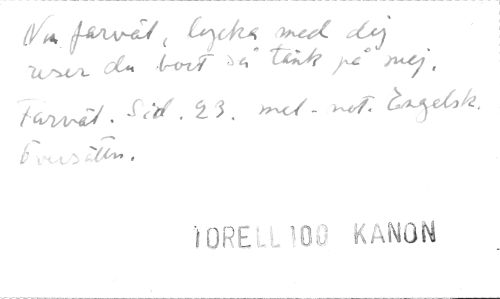 Nu farväl, lycka med dig
reser du bort så tänk på mej.
Farväl. Sid. 23. mel-not. Engelsk.
Översättn.
TORELL 100 KANON